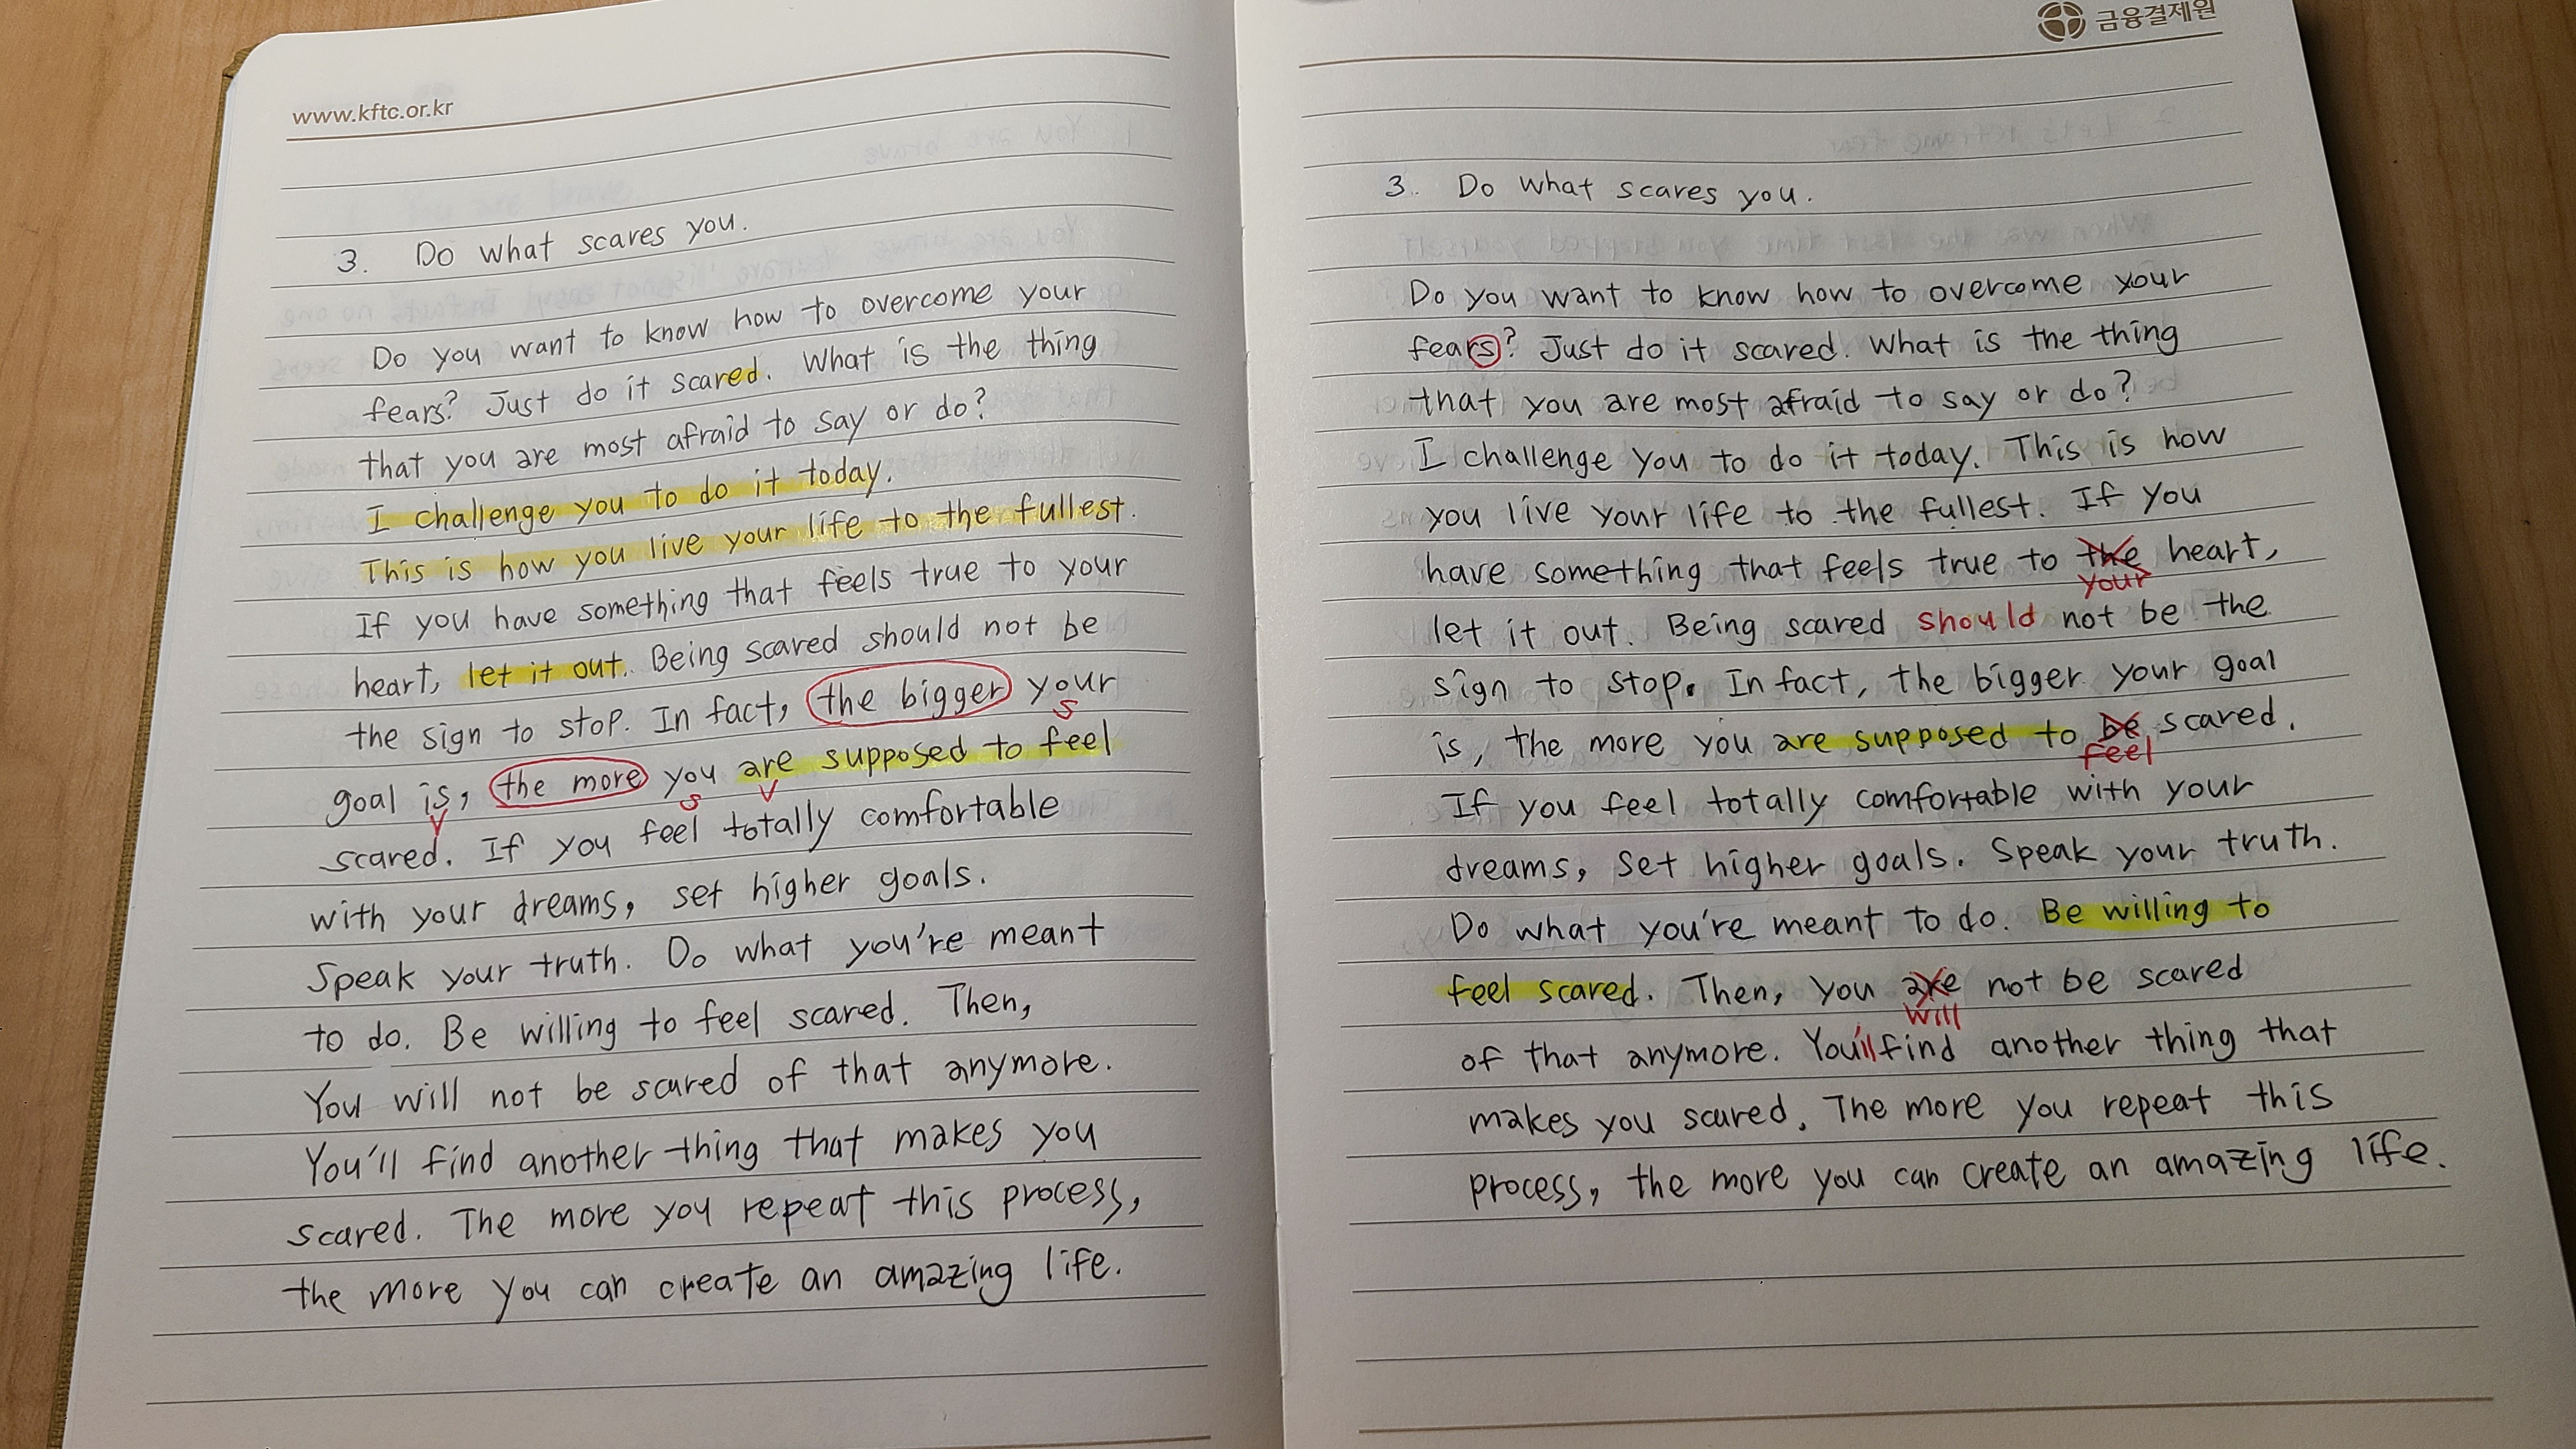 www.kftc.or.kr
3. Do what scares you.
Do you want to know how to overcome your
fears? Just do it scared. What is the thing
that you are most afraid to say or do?
I challenge you to do it today.
This is how you live your life to the fullest.
If you have something that feels true to your
heart, let it out. Being scared should not be
the sign to stop. In fact, the bigger your
s
goal is, the more you are supposed to feel
v s v
scared. If you feel totally comfortable
with your dreams, set higher goals.
Speak your truth. Do what you're meant
to do. Be willing to feel scared. Then,
You will not be scared of that anymore.
You'll find another thing that makes you
scared. The more you repeat this process,
the more you can create an amazing life.
금융결제원
3. Do what scares you.
Do you want to know how to overcome your
fears? Just do it scared. What is the thing
that you are most afraid to say or do?
I challenge you to do it today. This is how
you live your life to the fullest. If you
have something that feels true to the heart,
your
let it out. Being scared should not be the
sign to stop. In fact, the bigger your goal
is, the more you are supposed to be scared.
feel
If you feel totally comfortable with your
dreams, set higher goals. Speak your truth.
Do what you're meant to do. Be willing to
feel scared. Then, you are not be scared
will
of that anymore. You'll find another thing that
makes you scared. The more you repeat this
process, the more you can create an amazing life.